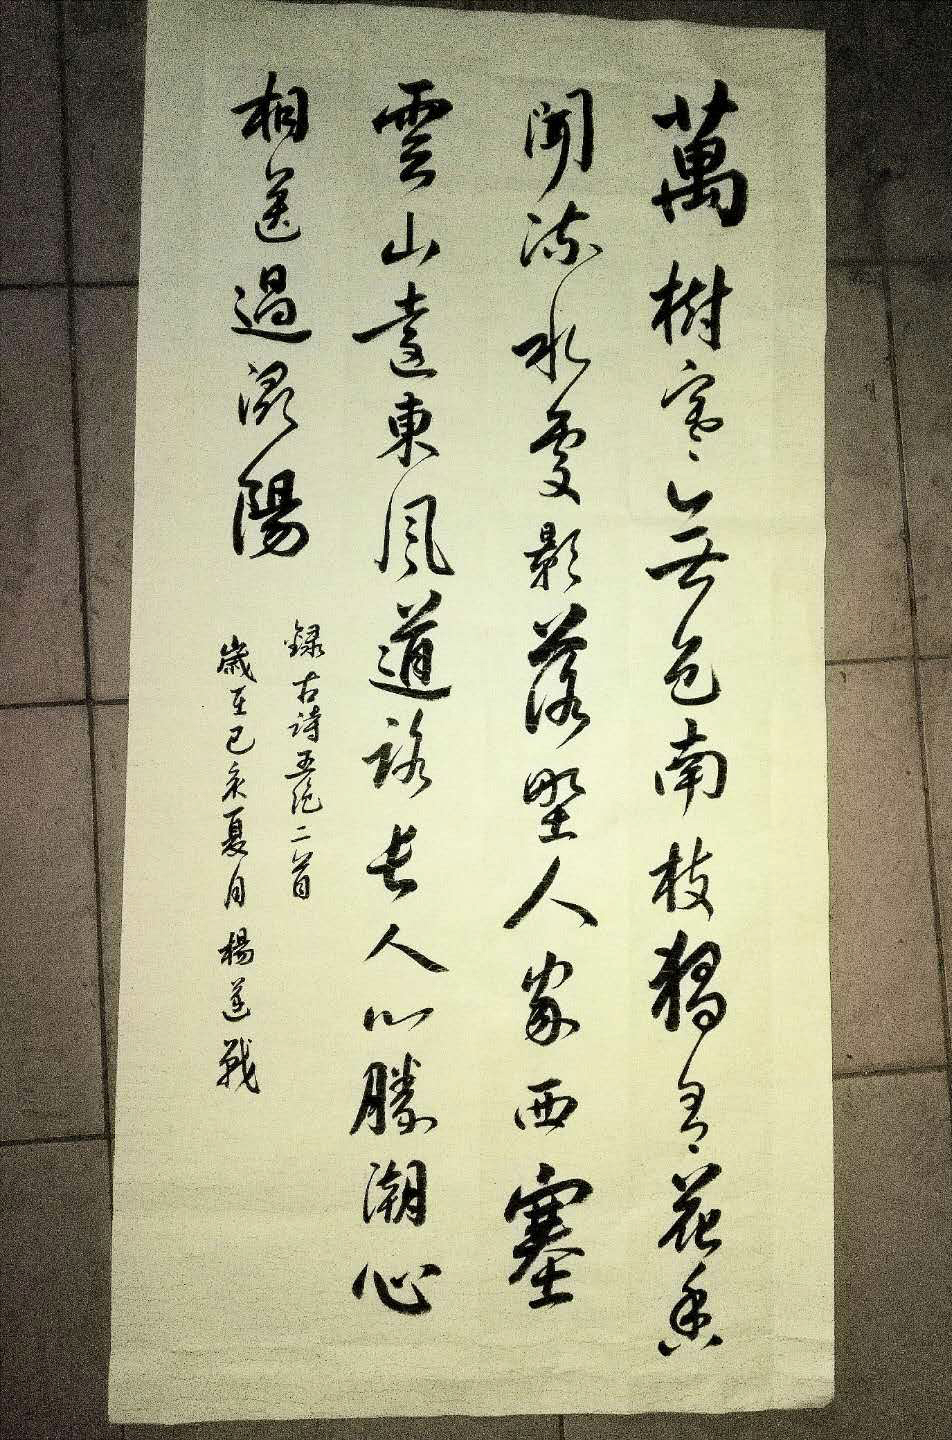 萬樹寒無色南枝獨有花香
聞流水處影落野人家西塞
雲山遠東風道路長人心勝潮心
相送過潯陽
錄古詩五絕二首
歲在己亥夏月 楊戰